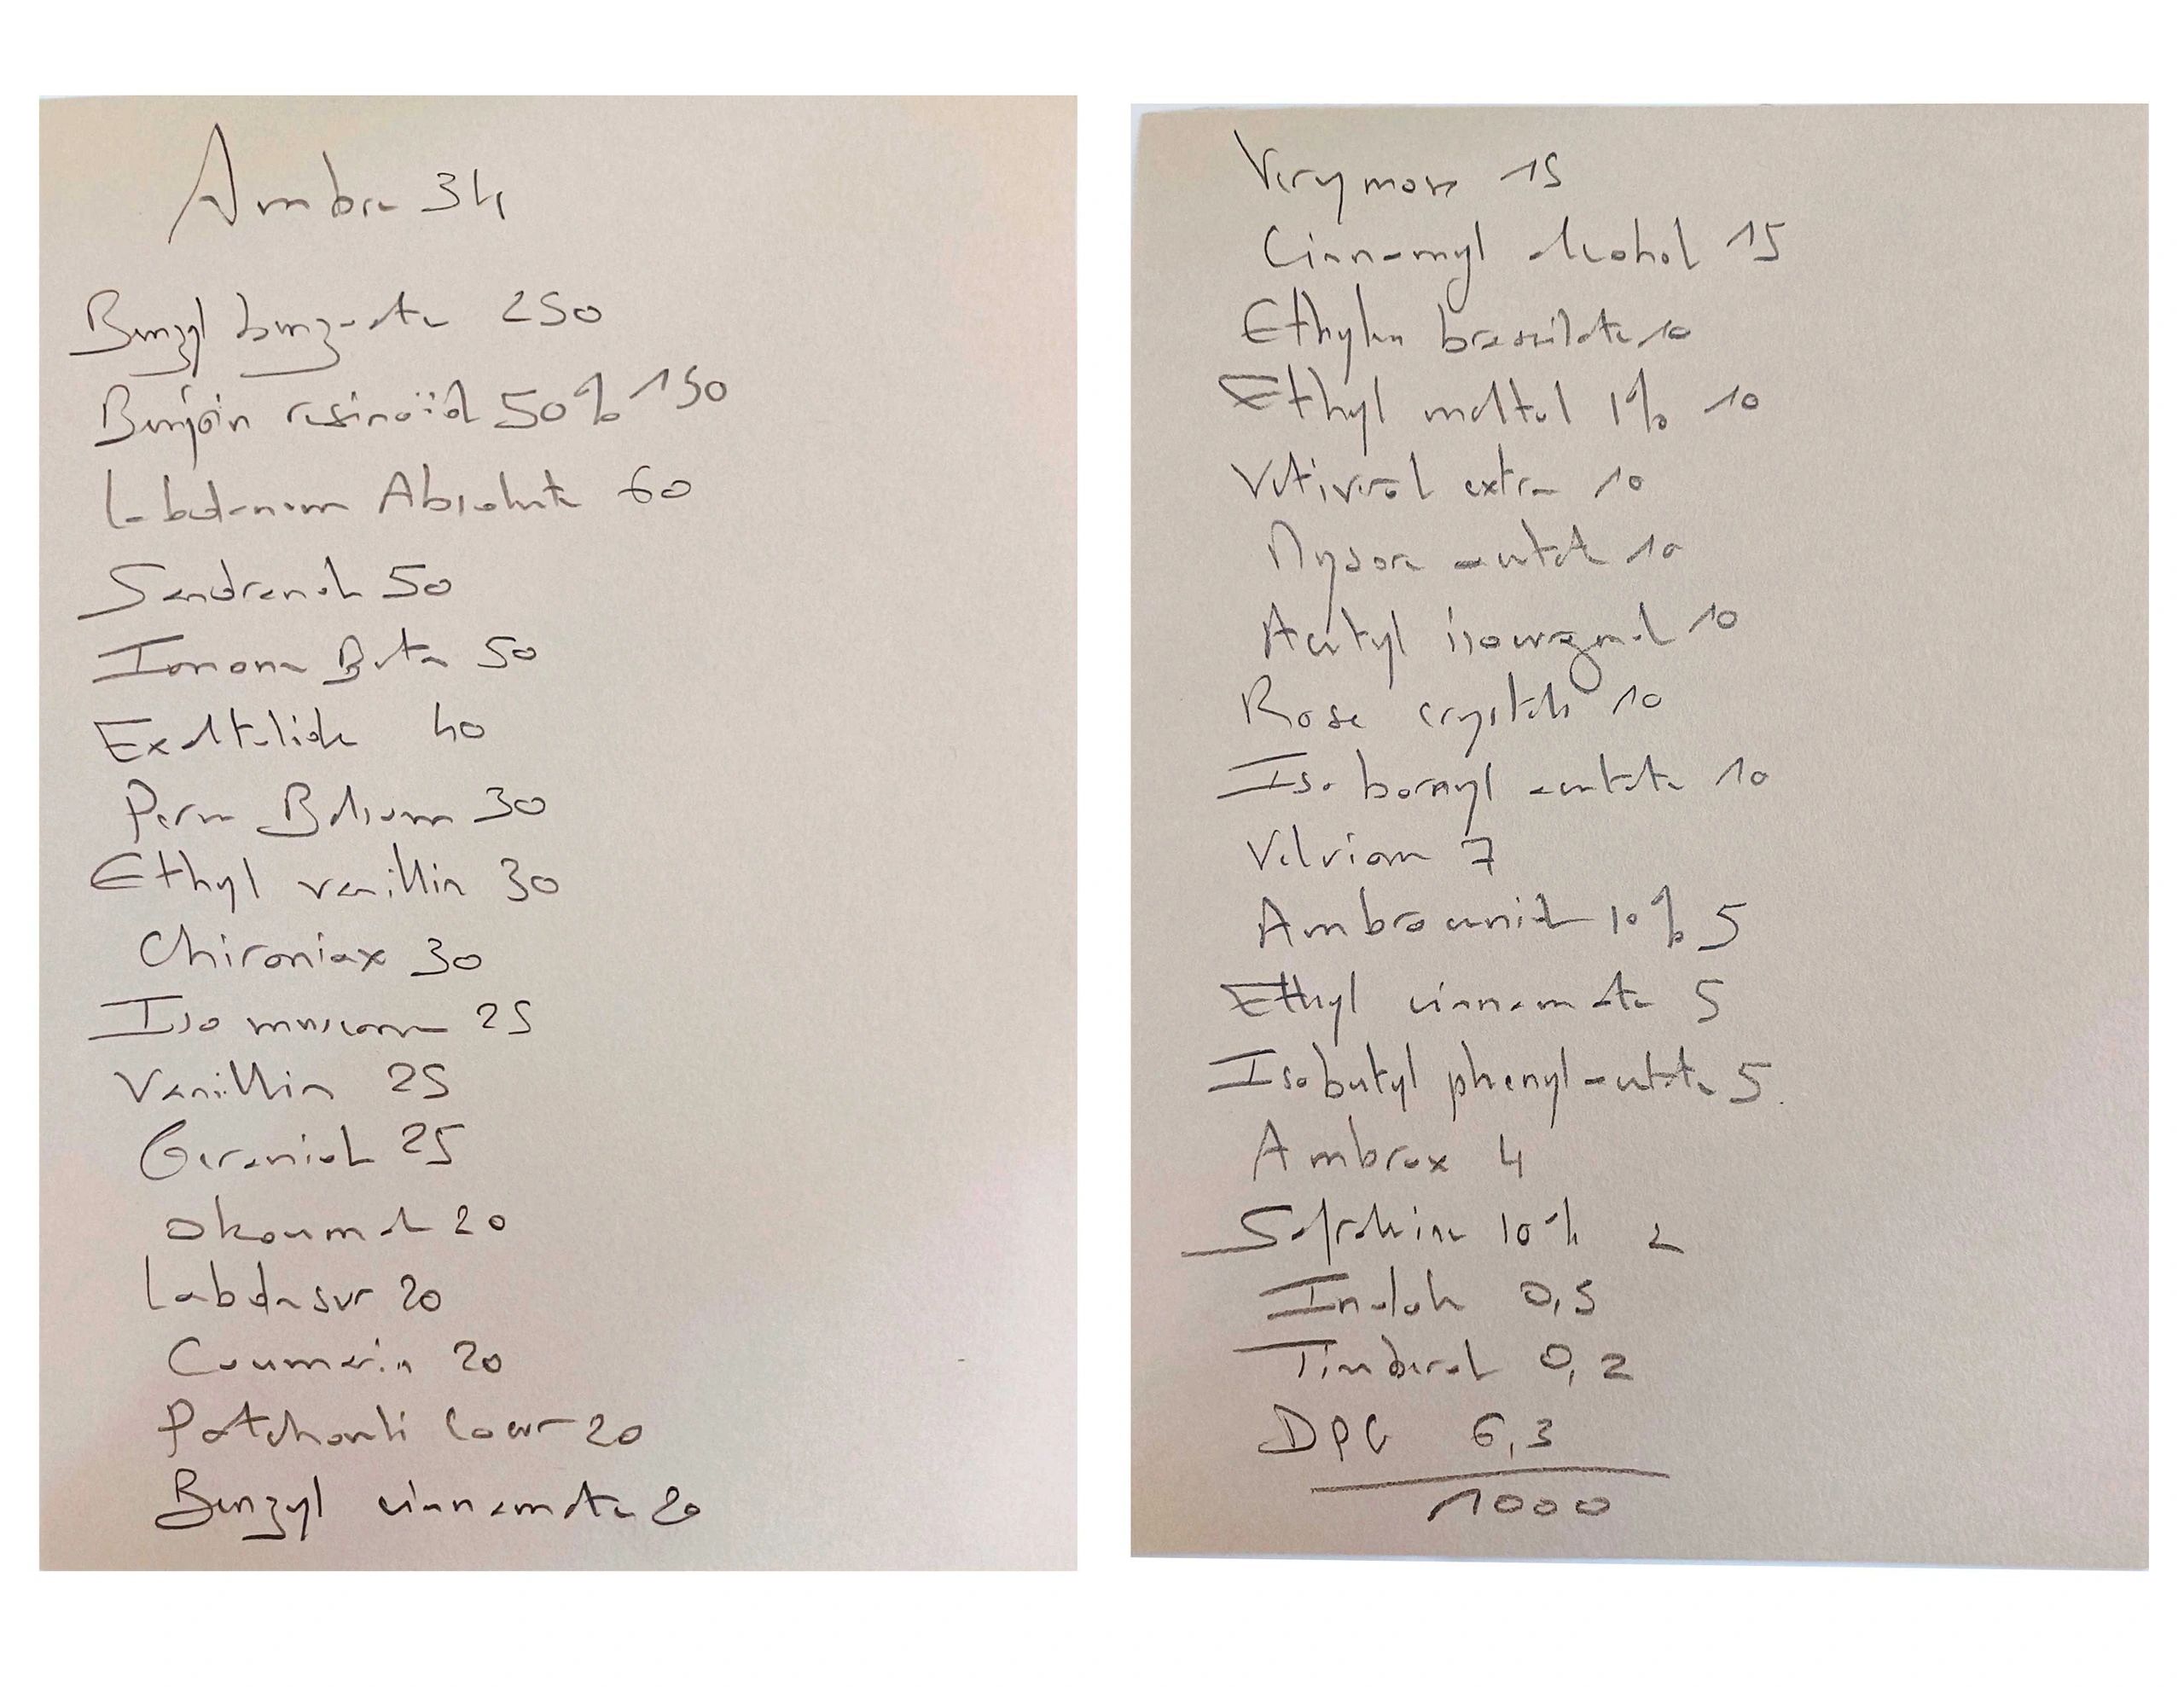 Ambre 34
Benzyl benzoate 250
Benjoin resinoïd 50% 150
Labdanum Absolute 60
Sandranol 50
Ionone Beta 50
Exaltolide 40
Peru Balsam 30
Ethyl vanillin 30
Chironiax 30
Iso muscone 25
Vanillin 25
Geraniol 25
Okoumal 20
Labdasur 20
Coumarin 20
Patchouli Coeur 20
Benzyl cinnamate 20
Verymoss 15
Cinnamyl alcohol 15
Ethylen brassilate 10
Ethyl maltol 1% 10
Vetiveral extra 10
Mysore acetate 10
Acetyl isoeugenol 10
Rose crystals 10
Iso bornyl acetate 10
Velvione 7
Ambrocenide 10% 5
Ethyl cinnamate 5
Isobutyl phenylacetate 5
Ambrox 4
Safraleine 10% 2
Indole 0,5
Timberol 0,2
DPG 6,3
1000